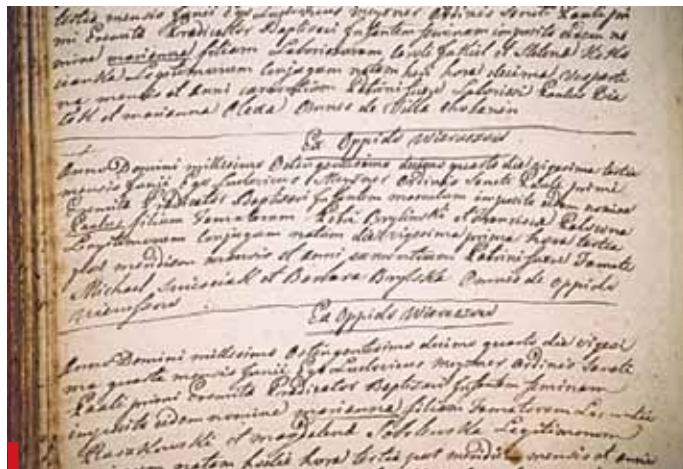 tertia mensis Junii Ego Ludovicus Meyzner Ordinis Sancti Pauli pri
mi Eremitæ Prædicator Baptisavi Infantem feminam imposito eidem no
mine marianna filiam Laboriosorum et Helena
Legitimorum Conjugum natam heri hora decima vesperti
na mensis et anni currentium Patrini fuere Laboriosi Paulus Bia
et marianna Olexa Omnes de Villa
Ex Oppido Wieruszow
Anno Domini millesimo Octingentesimo decimo quarto die vigesima tertia
mensis Junii Ego Ludovicus Meyzner Ordinis Sancti Pauli primi
Eremitæ Prædicator Baptisavi Infantem masculum imposito eidem nomine
Paulus filium Famatorum Brylinski et
Legitimorum Conjugum natum die vigesima prima hora tertia
post meridiem mensis et anni currentium Patrini fuere Famati
Michael et Barbara Brylska Omnes de oppido
Wieruszow
Ex Oppido Wieruszow
Anno Domini millesimo Octingentesimo decimo quarto die vigesi
ma quarta mensis Junii Ego Ludovicus Meyzner Ordinis Sancti
Pauli primi Eremitæ Prædicator Baptisavi Infantem feminam
imposito eidem nomine marianna filiam Famatorum
Ruszkowski et magdalena Sobolewska Legitimorum
natam hodie hora tertia post meridiem mensis et anni